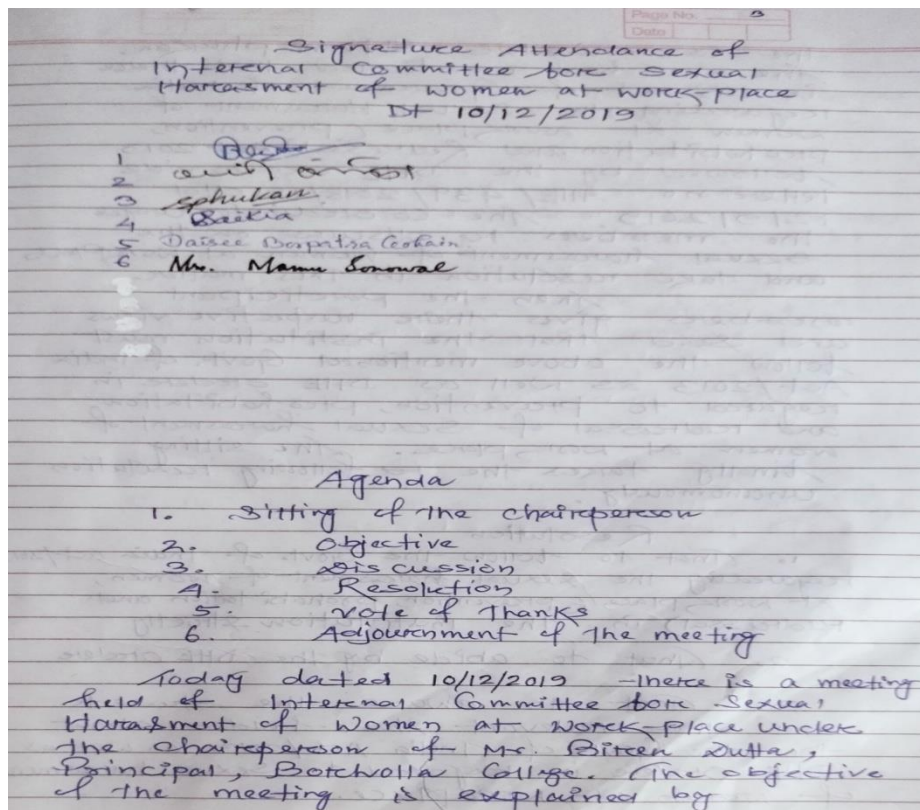 Page No. 3
Date
Signature Attendance of
Internal Committee for Sexual
Harrasment of Women at Work-Place
Dt 10/12/2019
1
2
3 Sphukan
4 Saikia
5 Daisee Borpatra Gohain
6 Mrs. Mamu Sonowal
Agenda
1. Sitting of the Chairperson
2. Objective
3. Discussion
4. Resolution
5. Vote of Thanks
6. Adjournment of the meeting
Today dated 10/12/2019 there is a meeting
held of Internal Committee for Sexual
Harrasment of Women at Work-Place under
the Chairperson of Mr. Biren Dutta,
Principal, Borholla College. The objective
of the meeting is explained by